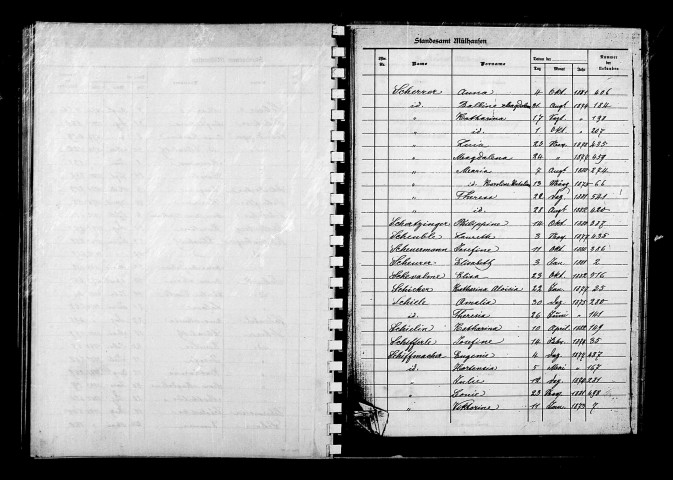 Standesamt Mülhausen
Offn. Nr. Name Vorname Datum der Tag Monat Jahr Nummer der Urkunden
Scherrer Anna 4 Okt. 1881 406
id. Balbine Magdalena 31 Augt 1874 184
" Katharina 17 Sept. " 198
" id. 1 Okt. " 207
" Luia 23 Nov. 1878 435
" Magdalena 24 " 1877 459
" Maria 7 Augt 1880 274
" id. Karoline 13 März 1875 66
" Theresa 22 Dez. 1881 541
" id. 28 Augt 1882 420
Schertzinger Philippine 14 Okt. 1880 387
Scheuble 3 Nov. 1877 435
Scheuermann Josefine 11 Okt. 1880 386
Scheurer Elisabeth 3 Jan. 1881 2
Elisa 23 Okt. 1882 516
Schicker Katharina Aloisia 22 Jan. 1877 25
Schiele Amalia 30 Dez 1875 280
id. Theresia 26 Juni " 141
Schielin Katharina 10 April 1882 149
Schifferle Josefine 14 Febr. 1878 35
Schiffmacher Eugenie 4 Dez 1877 487
id. Hortensia 5 Mai " 167
" Julie 12 Dez. 1874 251
" Leonie 23 Nov. 1881 498
" Viktorine 11 Jan. 1873 7